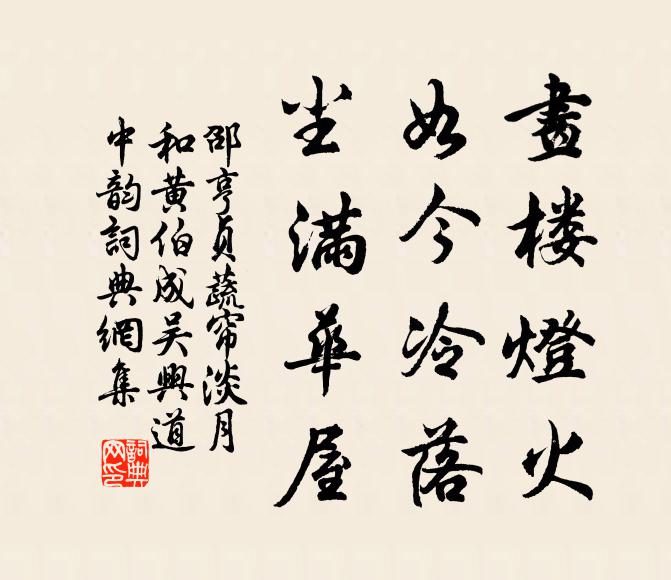 畫楼燈火
如今冷落
尘滿華屋
邵亨貞蔬帘淡月
和黄伯成吴興道
中韵詞典網集
詞典网印